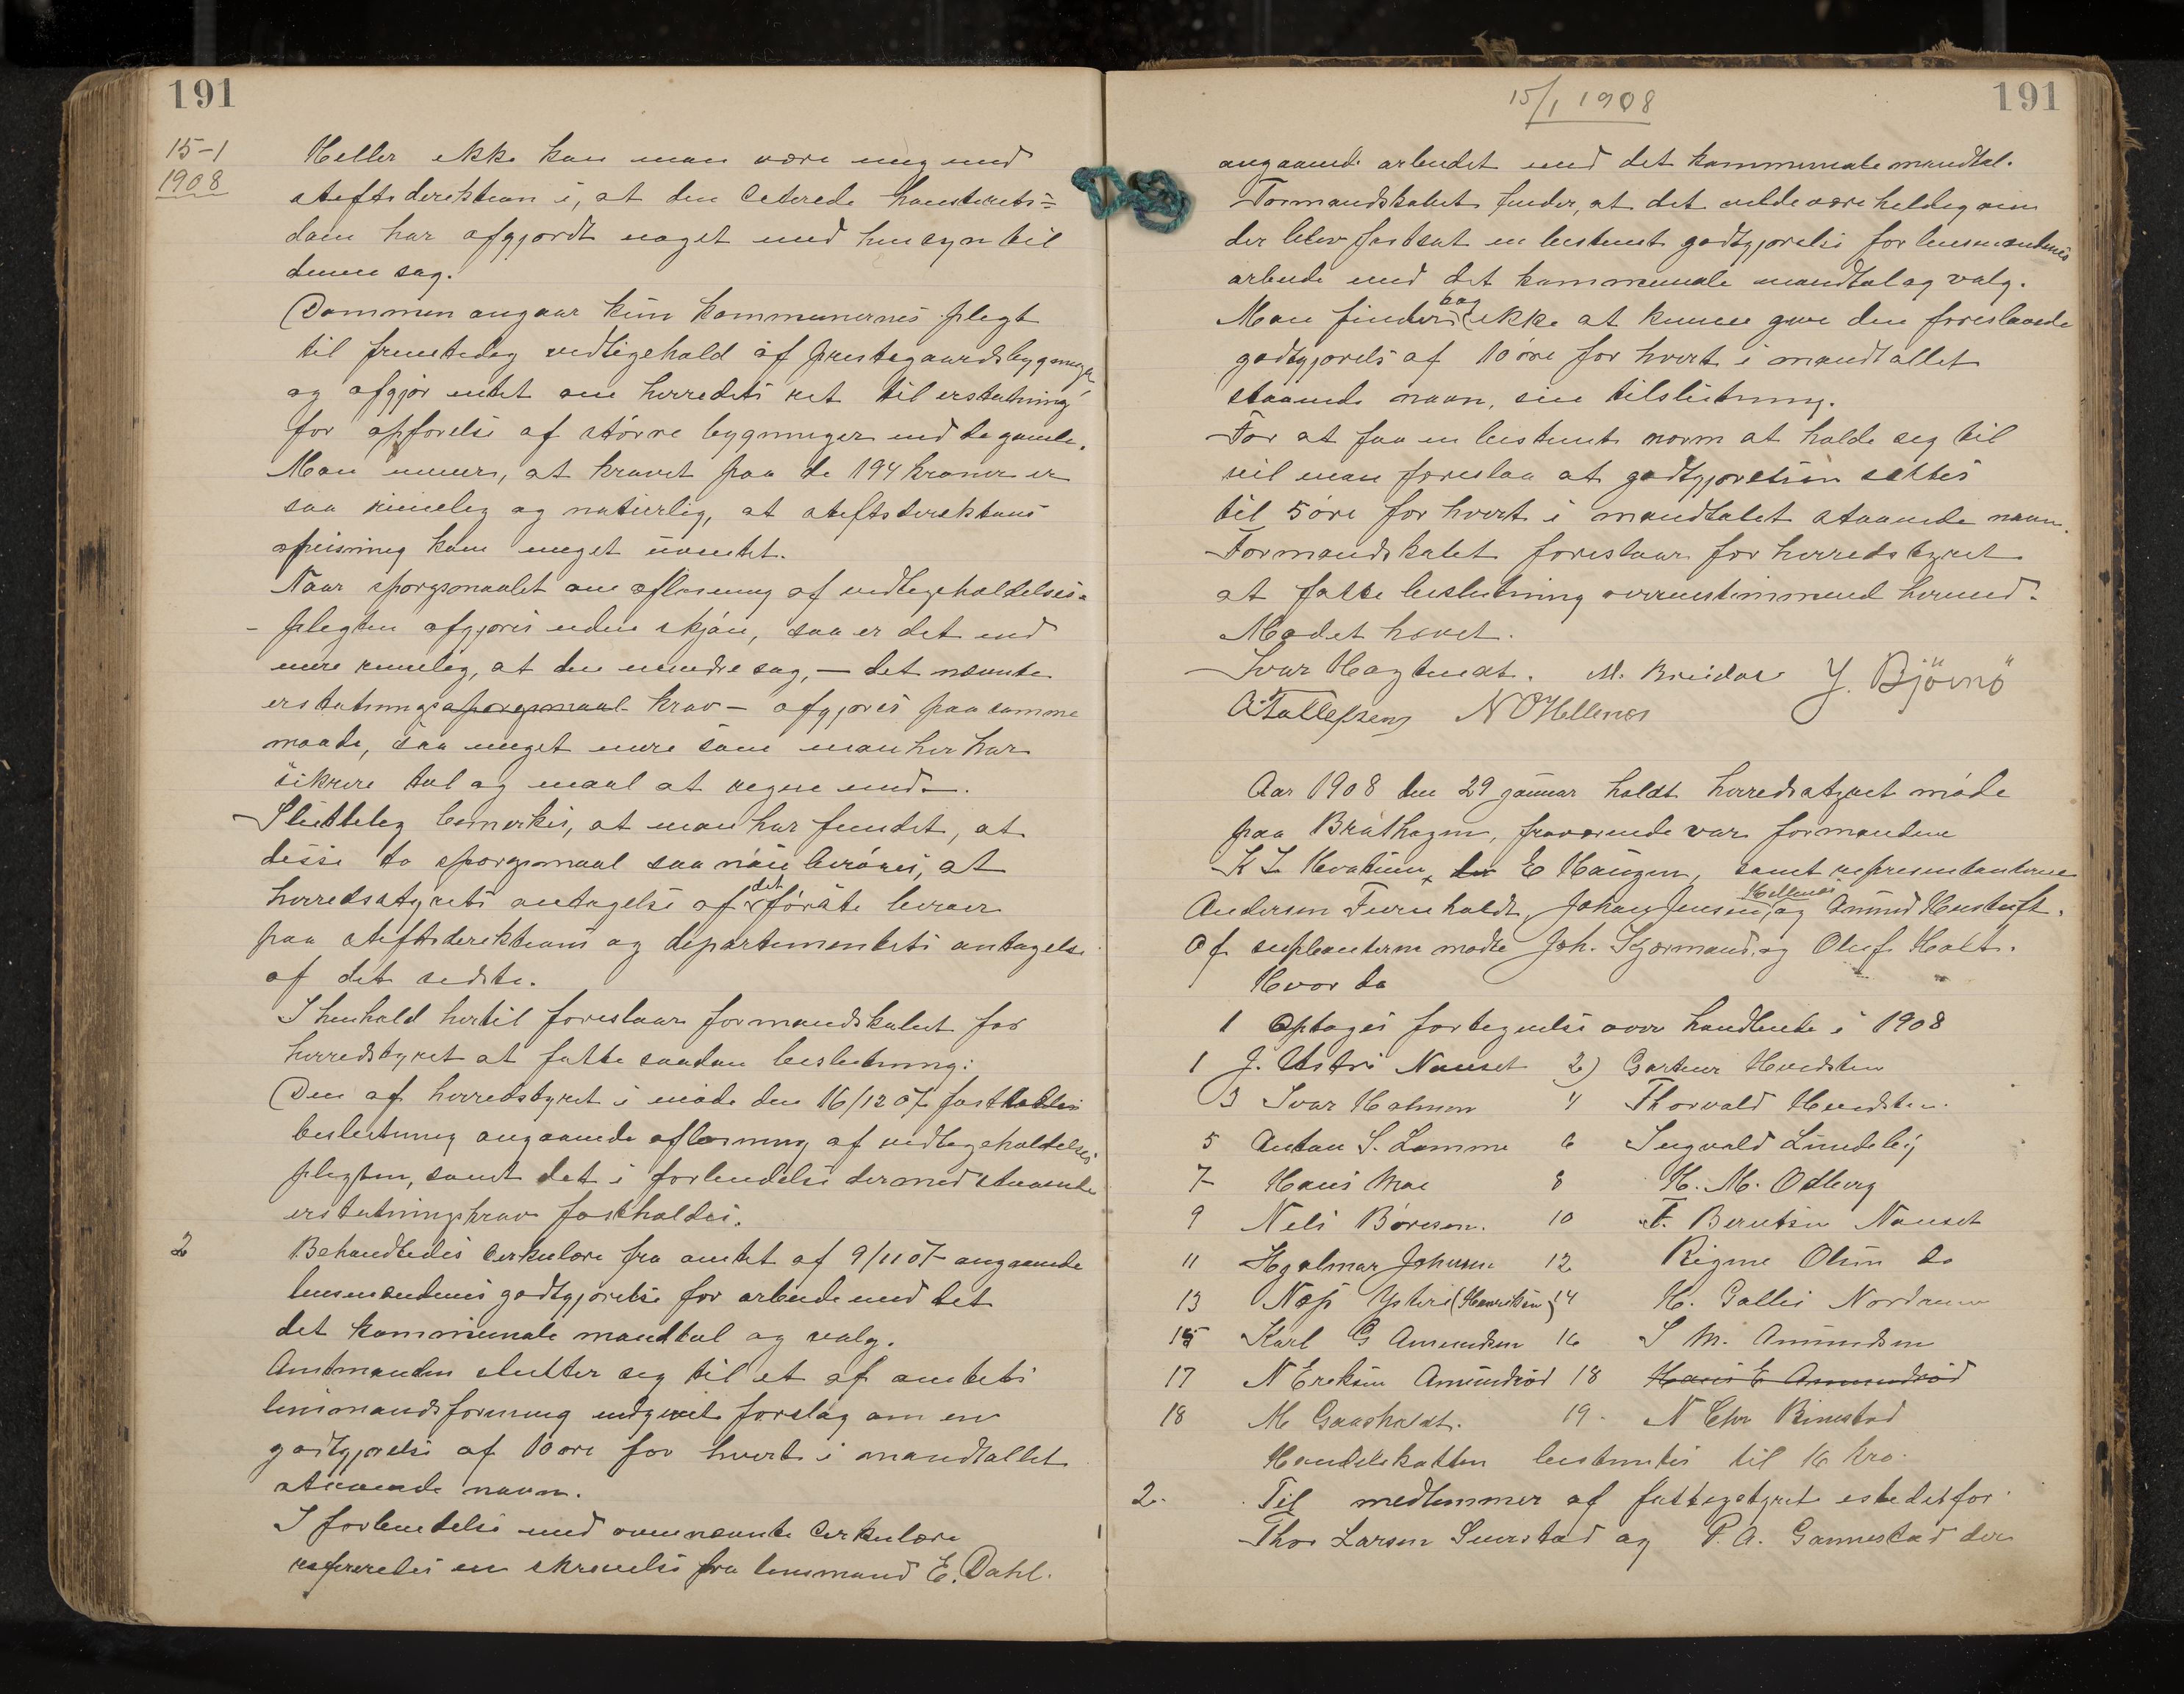 191
15-1
1908
Heller ikke kan man være enig med
stiftsdirektion i, at den citerede høiesterets=
dom har afgjordt noget med hensyn til
denne sag.
Dommen angaar kun kommunernes pligt
til fremtidig vedligehold af prestegaardsbygninger
og afgjør intet om herredets ret til erstatning
for opførelse af større bygninger end de gamle.
Man mener, at kravet paa de 194 kroner er
saa rimelig og naturlig, at stiftsdirektions
afvisning kom meget uventet.
Naar spørgsmaalet om afløsning af vedligeholdelses-
- pligten afgjøres uden skjøn, saa er det end
mere rimelig, at den mindre sag, — det nævnte
erstatningsspørgsmaal krav — afgjøres paa samme
maade, saa meget mere som man her har
sikrere tal og maal at regne med.
Sluttelig bemerkes, at man har fundet, at
disse to spørgsmaal saa nøie berøres, at
herredsstyrets antagelse af det første beror
paa stiftsdirektions og departementets antagelse
af det sidste.
I henhold hertil foreslaar formandskabet for
herredstyret at fatte saadan beslutning:
Den af herredstyret i møde den 16/12 07 fattede
beslutning angaaende afløsning af vedligeholdelses
pligten, samt det i forbindelse dermed staaende
erstatningskrav fastholdes.
2 Behandledes cirkulære fra amtet af 9/11 07 angaaende
lensmændenes godtgjørelse for arbeide med det
det kommunale mandtal og valg.
Amtmanden slutter sig til et af amtets
lensmandsforening indgivet forslag om en
godtgjørelse af 10 øre for hvert i mandtallet
staaende navn.
I forbindelse med ovennævnte cirkulære
refereredes en skrivelse fra lensmand E. Dahl.
191
15/1 1908
angaaende arbeidet med det kommunale mandtal.
Formandskabet finder, at det vilde være heldig om
der blev fastsat en bestemt godtgjørelse for lensmændenes
arbeide med det kommunale mandtal og valg.
Man finder dog ikke at kunne give den foreslaaede
godtgjørels af 10 øre for hvert i mandtallet
staaende navn, sin tilslutning.
For at faa en bestemt norm at holde seg til
vil man foreslaa at godtgjørelsen sættes
til 5 øre for hvert i mandtalet staaende navn.
Formandskabet foreslaar for herredstyret
at fatte beslutning overenstimmend hermed.
Mødet hævet.
Ivar Hagtvedt. M. Breidar J. Bjørnø
O. Tollefsen N O Hellenes
Aar 1908 den 29 januar holdt herredsstyret møde
paa Bråthagen, fraværende var formændene
K L Hvatum, E Haugen, samt representanterne
Anderson Furuholdt, Johan Jensen, Hellenes og Amund Hestuft.
Of suplenterne mødte Joh. Skjørmand, og Oluf Holt.
Hvor da
1 Optages fortegnelse over handlende i 1908
1 J. Ustri Nauset 2) Gartner Hvidsten
3 Ivar Holmen 4 Thorvald Hvidsten.
5 Anton S. Lomme 6 Ingvald Lindelig
7 Hans Moe 8 H. M. Odberg
9 Nils Børesen. 10 F. Berntsen Nauset
11 Hjalmar Johnsen 12 Rigme Olsen do
13 Næs Ysteri (Henriksen) 14 H. Gallis Nordrum
15 Karl G Amundsen 16 S M. Amundsen
17 N Eriksen Amundrød 18 Hans E Amundrød
18 M Gaasholdt. 19. N Chr Rimstad
Handelskatten bestemtes til 16 kro.
2. Til medlemmer af fattigstyret estedetfor
Thor Larsen Sverstad og P. A. Gannestad der